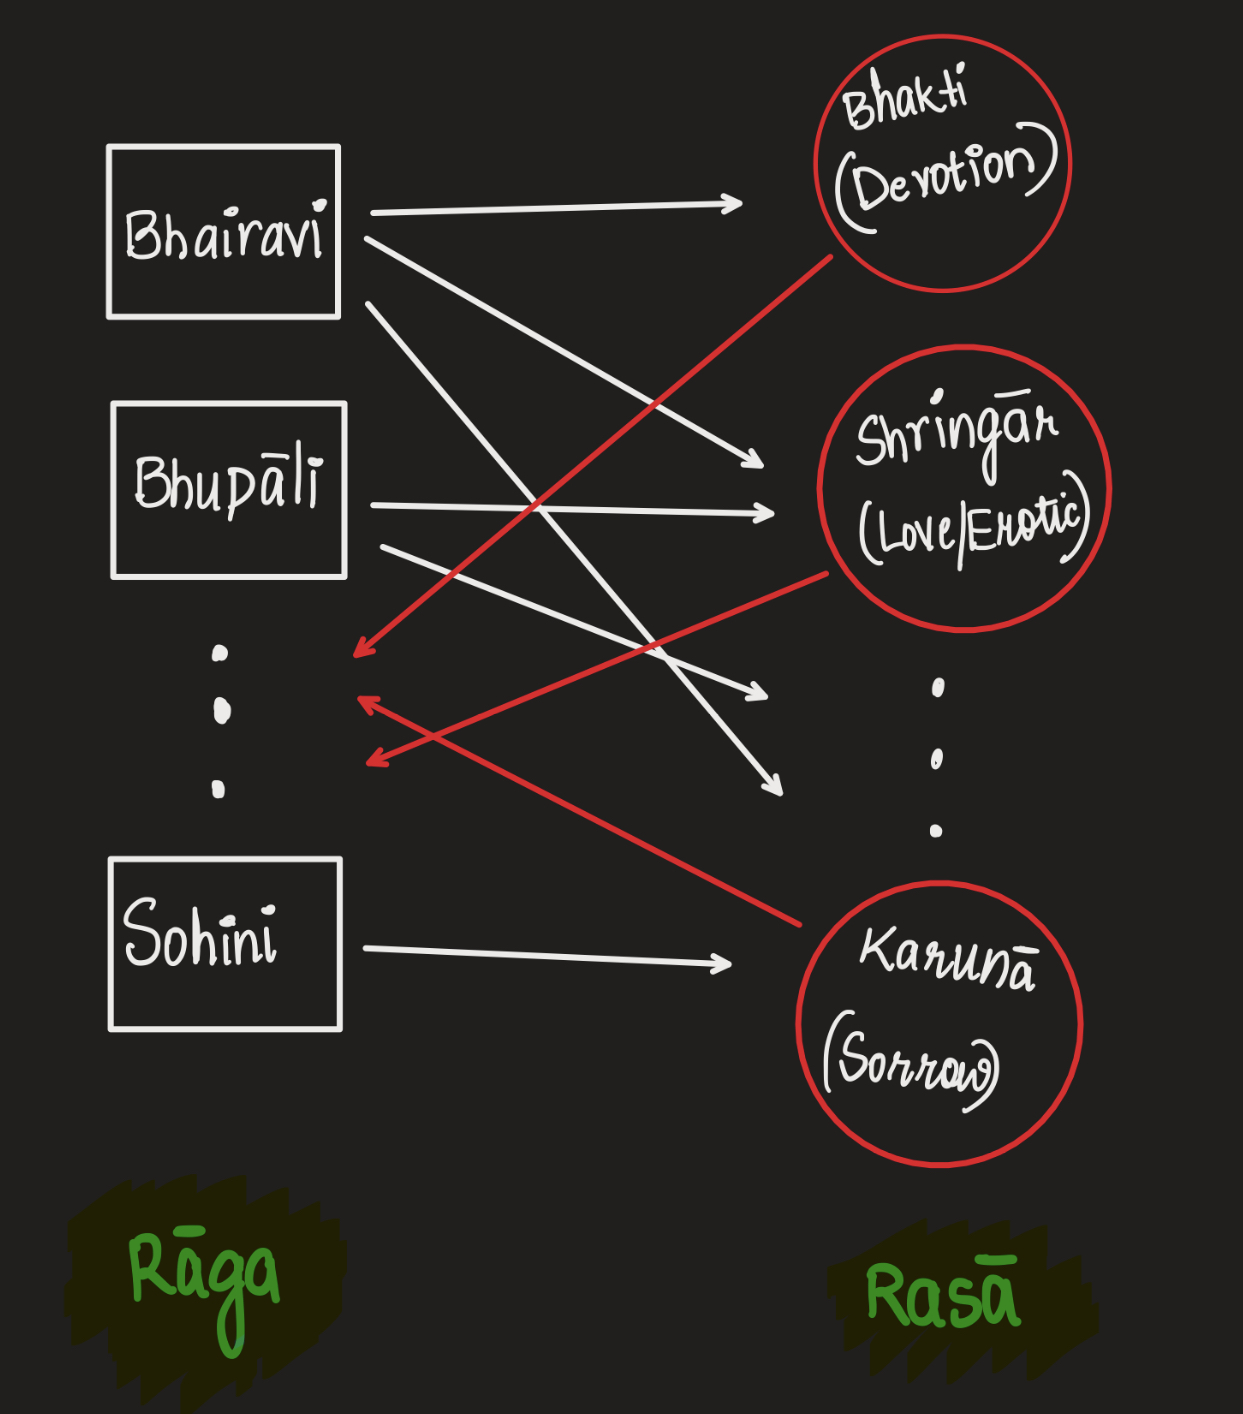 Bhairavi
Bhupāli
Sohini
Rāga
Bhakti
(Devotion)
Shringār
(Love/Erotic)
Karunā
(Sorrow)
Rasā